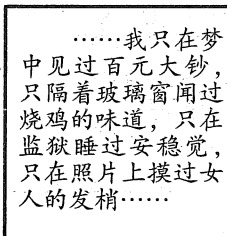 ……我只在梦
中见过百元大钞，
只隔着玻璃窗闻过
烧鸡的味道，只在
监狱睡过安稳觉，
只在照片上摸过女
人的发梢……